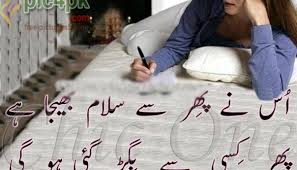 pic4pk
.com
اُس نے پِھر سے سلام بھیجا ہے
Chic One
پھر کِسی سے بِگڑ گئی ہو گی